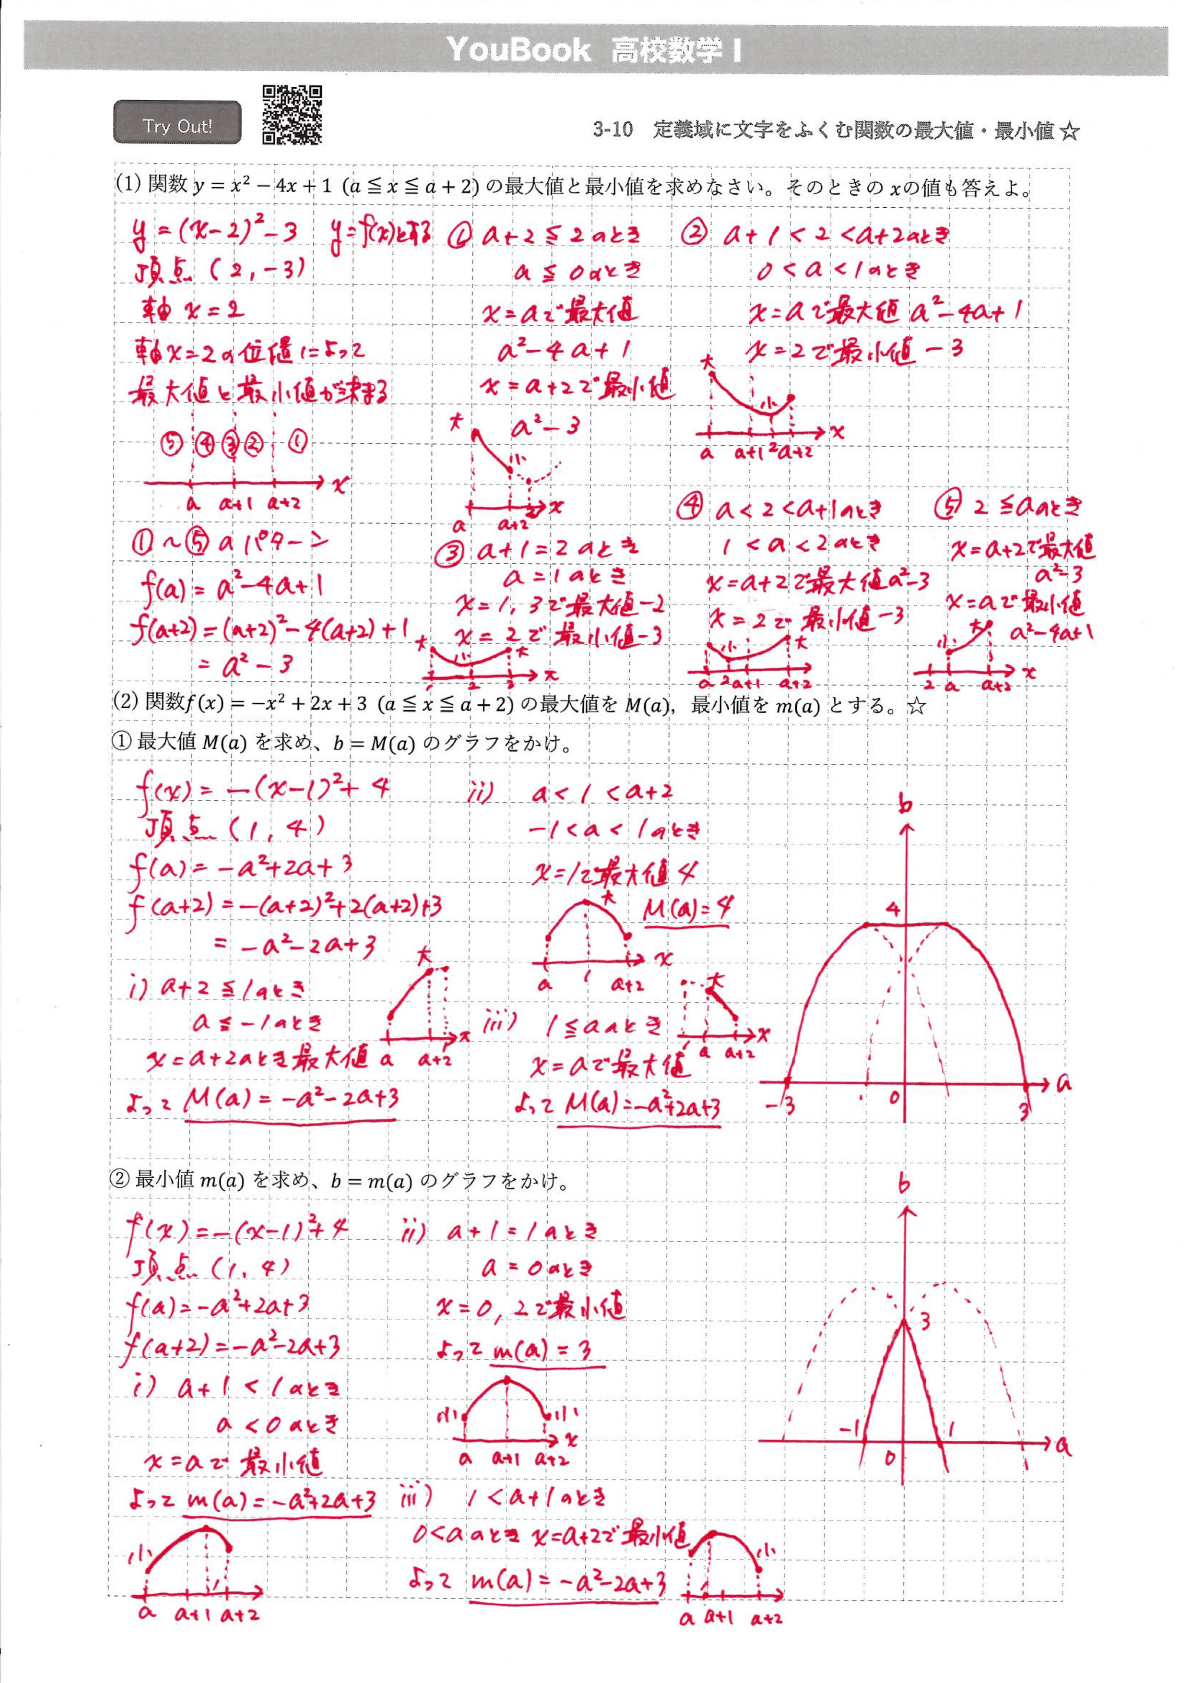 YouBook 高校数学 I
Try Out!
3-10 定義域に文字をふくむ関数の最大値・最小値 ☆
(1) 関数 y = x² − 4x + 1 (a ≦ x ≦ a + 2) の最大値と最小値を求めなさい。そのときの xの値も答えよ。
y = (x-2)² - 3 y = f(x)とする
頂点 (2, -3)
軸 x = 2
軸x=2の位置によって
最大値と最小値が決まる
⑤ ④ ③ ② ①
x
a a+1 a+2
①〜⑤のパターン
f(a) = a²-4a+1
f(a+2) = (a+2)²-4(a+2)+1
= a²-3
① a+2 ≦ 2 のとき
a ≦ 0 のとき
x=a で最大値
a²-4a+1
x=a+2で最小値
a²-3
大 小
a a+2 2 x
② a+1 < 2 < a+2 のとき
0 < a < 1 のとき
x=a で最大値 a²-4a+1
x=2で最小値 -3
大 小
x
a a+1 2 a+2
③ a+1 = 2 のとき
a = 1 のとき
x=1, 3で最大値-2
x=2で最小値-3
大 小 大
1 2 3 x
④ a < 2 < a+1 のとき
1 < a < 2 のとき
x=a+2で最大値a²-3
x=2で最小値-3
小 大
a 2 a+1 a+2
⑤ 2 ≦ a のとき
x=a+2で最大値
a²-3
x=aで最小値
a²-4a+1
小 大
2 a a+2 x
(2) 関数f(x) = −x² + 2x + 3 (a ≦ x ≦ a + 2) の最大値を M(a), 最小値を m(a) とする。☆
① 最大値 M(a) を求め、b = M(a) のグラフをかけ。
f(x) = -(x-1)²+4
頂点 (1, 4)
f(a) = -a²+2a+3
f(a+2) = -(a+2)²+2(a+2)+3
= -a²-2a+3
i) a+2 ≦ 1 のとき
a ≦ -1 のとき
x=a+2のとき最大値
よって M(a) = -a²-2a+3
大
a a+2 x
ii) a < 1 < a+2
-1 < a < 1 のとき
x=1で最大値 4
M(a)=4
大
x
a 1 a+2
iii) 1 ≦ a のとき
x=aで最大値
よって M(a)=-a²+2a+3
大
1 a a+2 x
b
4
a
-3 0 3
② 最小値 m(a) を求め、b = m(a) のグラフをかけ。
f(x) = -(x-1)²+4
頂点 (1, 4)
f(a) = -a²+2a+3
f(a+2) = -a²-2a+3
i) a+1 < 1 のとき
a < 0 のとき
x=aで 最小値
よって m(a) = -a²+2a+3
小
1
a a+1 a+2
ii) a+1 = 1 のとき
a = 0 のとき
x=0, 2で最小値
よって m(a) = 3
小 小
x
a a+1 a+2
iii) 1 < a+1 のとき
0 < a のとき x=a+2で最小値
よって m(a) = -a²-2a+3
小
1
a a+1 a+2
b
3
-1 1
a
0